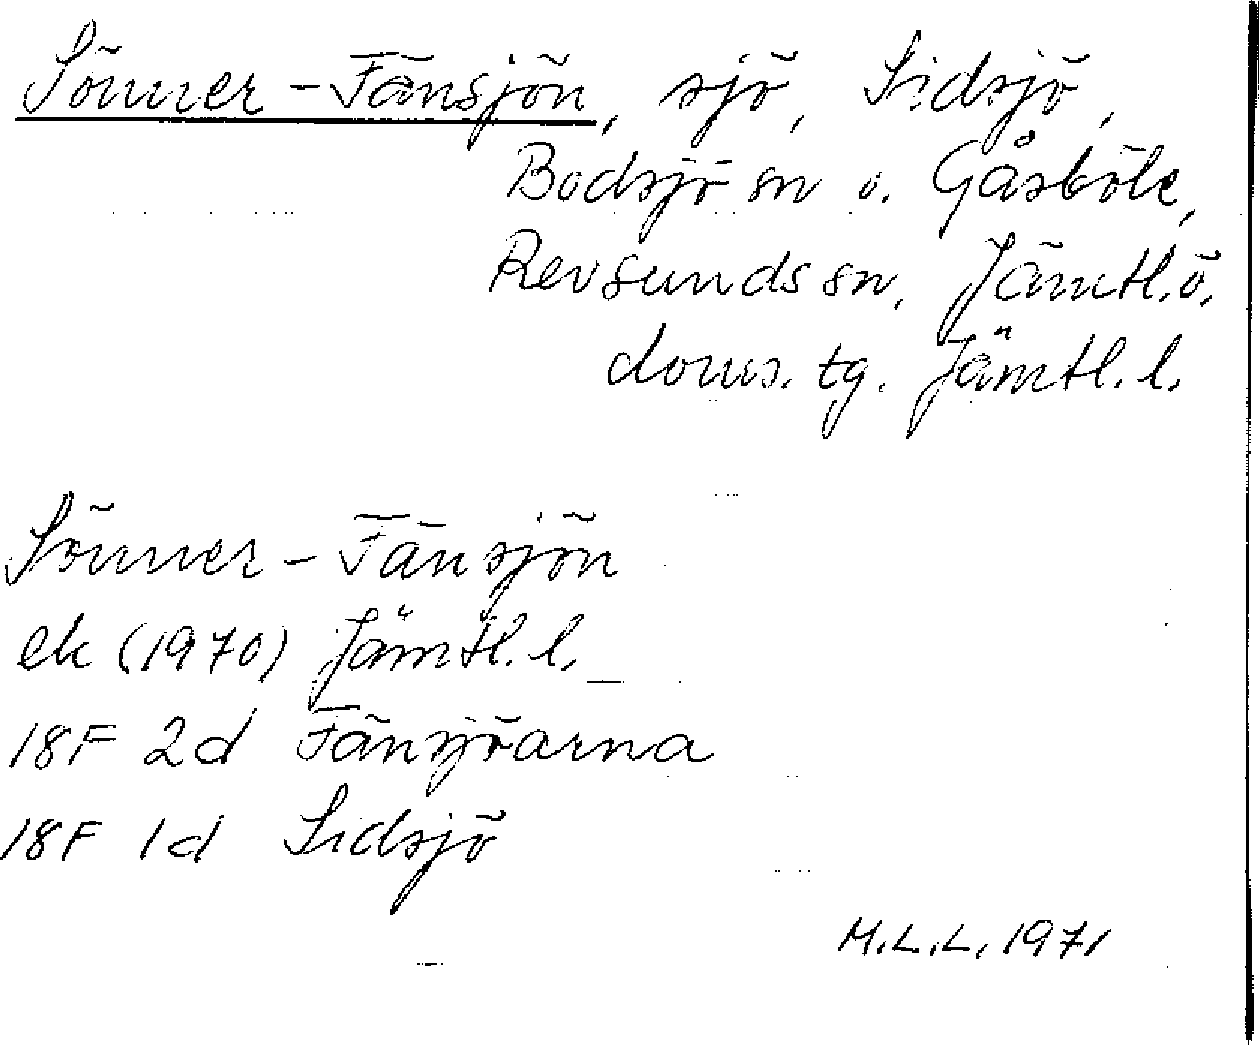 Sönner-Fänsjön, sjö, Sidsjö,
Bodsjö sn o. Gåsböle,
Revsunds sn, Jämtl. ö.
doms. tg. Jämtl. l.
Sönner-Fänsjön
ek (1970) Jämtl. l.
18F 2d Fänsjöarna
18F 1d Sidsjö
M.L.L. 1971